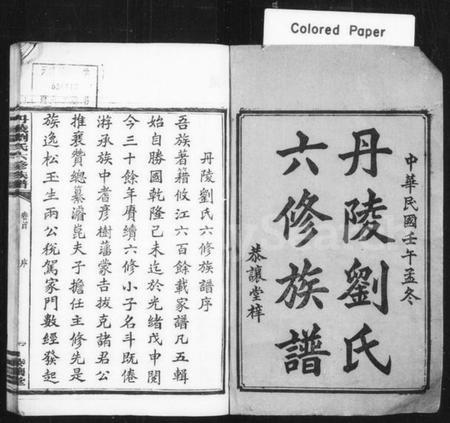 Colored Paper
中華民國壬午孟冬
丹陵劉氏
六修族譜
恭讓堂梓
丹陵劉氏六修族譜序
吾族著籍攸江六百餘載家譜凡五輯
始自勝國乾隆己未迄於光緒戊申閱
今三十餘年賡續六修小子名斗既倦
游承族中耆彥樹藩蒙吉拔克諸君公
推襄贊總纂濬崑夫子擔任主修先是
族逸松玉生兩公稅駕家門數經發起
丹陵劉氏六修族譜
卷首
序
一
恭讓堂